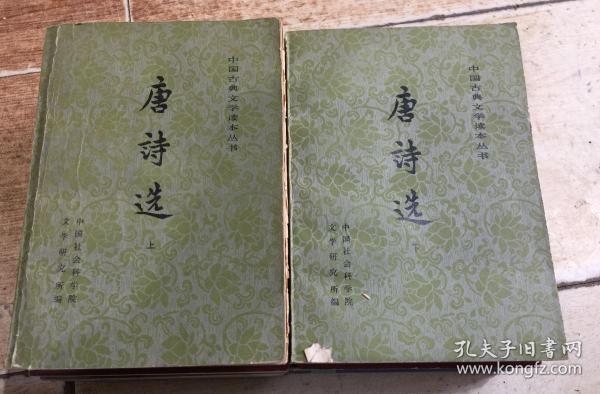 中国古典文学读本丛书
唐詩选
上
中国社会科学院
文学研究所编
中国古典文学读本丛书
唐詩选
下
中国社会科学院
文学研究所编
孔夫子旧书网
www.kongfz.com